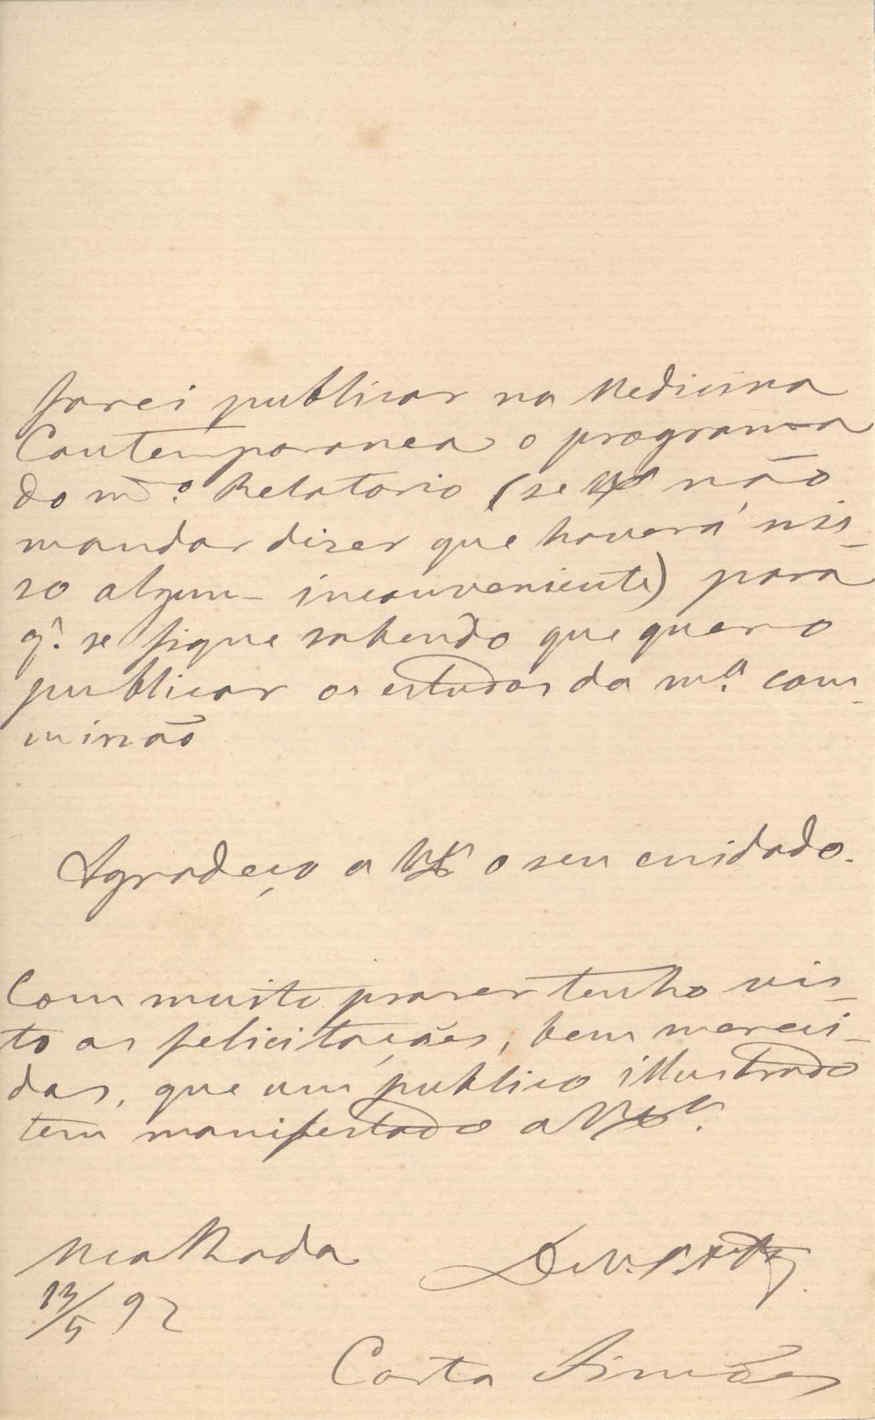 farei publicar na Medicina
Contemporanea o programa
do m.º Relatorio (se não
mandar dizer que haverá nis-
so algum inconveniente) para
q. se fique sabendo que quero
publicar os estudos da m.ª com-
missão
Agradeço a o seu cuidado.
Com muito praser tenho vis-
to as felicitações, bem mereci-
das, que um publico illustrado
tem manifestado a
Mealhada
De V.
/5 92
Costa Simões